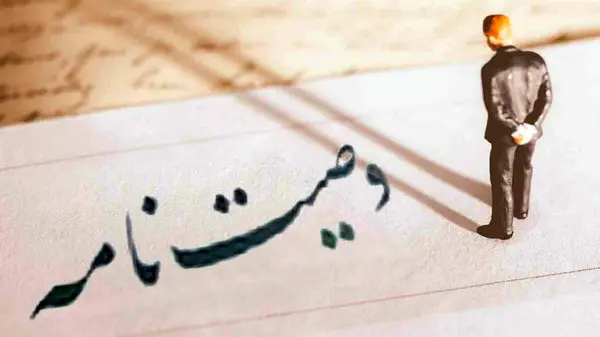 وصیت‌نامه